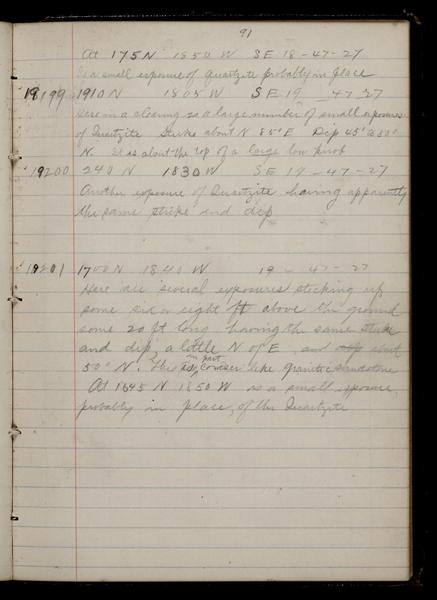 91
At 175 N 1850 W SE 18-47-27
is a small exposure of Quartzite probably in place
19199 1910 N 1805 W SE 19 47-27
Here in a clearing is a large number of small exposures
of Quartzite Strike about N 85° E Dip 45° to 80°
N. It is about the top of a large low knob
19200 240 N 1830 W SE 19-47-27
Another exposure of Quartzite having apparently
the same strike and dip
19201 1700 N 1840 W 19 - 47-27
Here are several exposures sticking up
some six or eight ft above the ground
some 20 ft long having the same strike
and dip, a little N of E, and about
50° N. The is in part Coarser like granitic sandstone
At 1645 N 1850 W is a small exposure,
probably in place, of the Quartzite